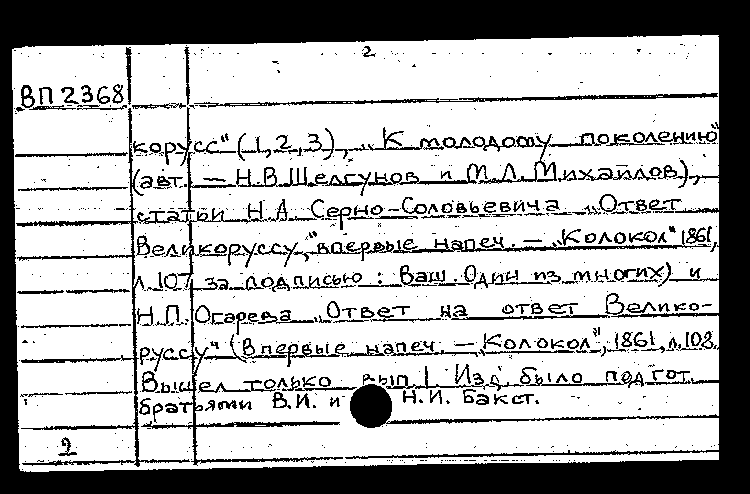 2
ВП 2368
корусс" (1,2,3), „К молодому поколению"
(авт. — Н.В.Шелгунов и М.Л.Михайлов),
статьи Н.А. Серно-Соловьевича „Ответ
Великоруссу," впервые напеч. — „Колокол" 1861,
л.107 за подписью: Ваш. Один из многих) и
Н.П. Огарева „Ответ на ответ Велико-
руссу" (Впервые напеч. — „Колокол", 1861, л.108.
Вышел только вып.1. Изд. было подгот.
братьями В.И. и Н.И. Бакст.
9